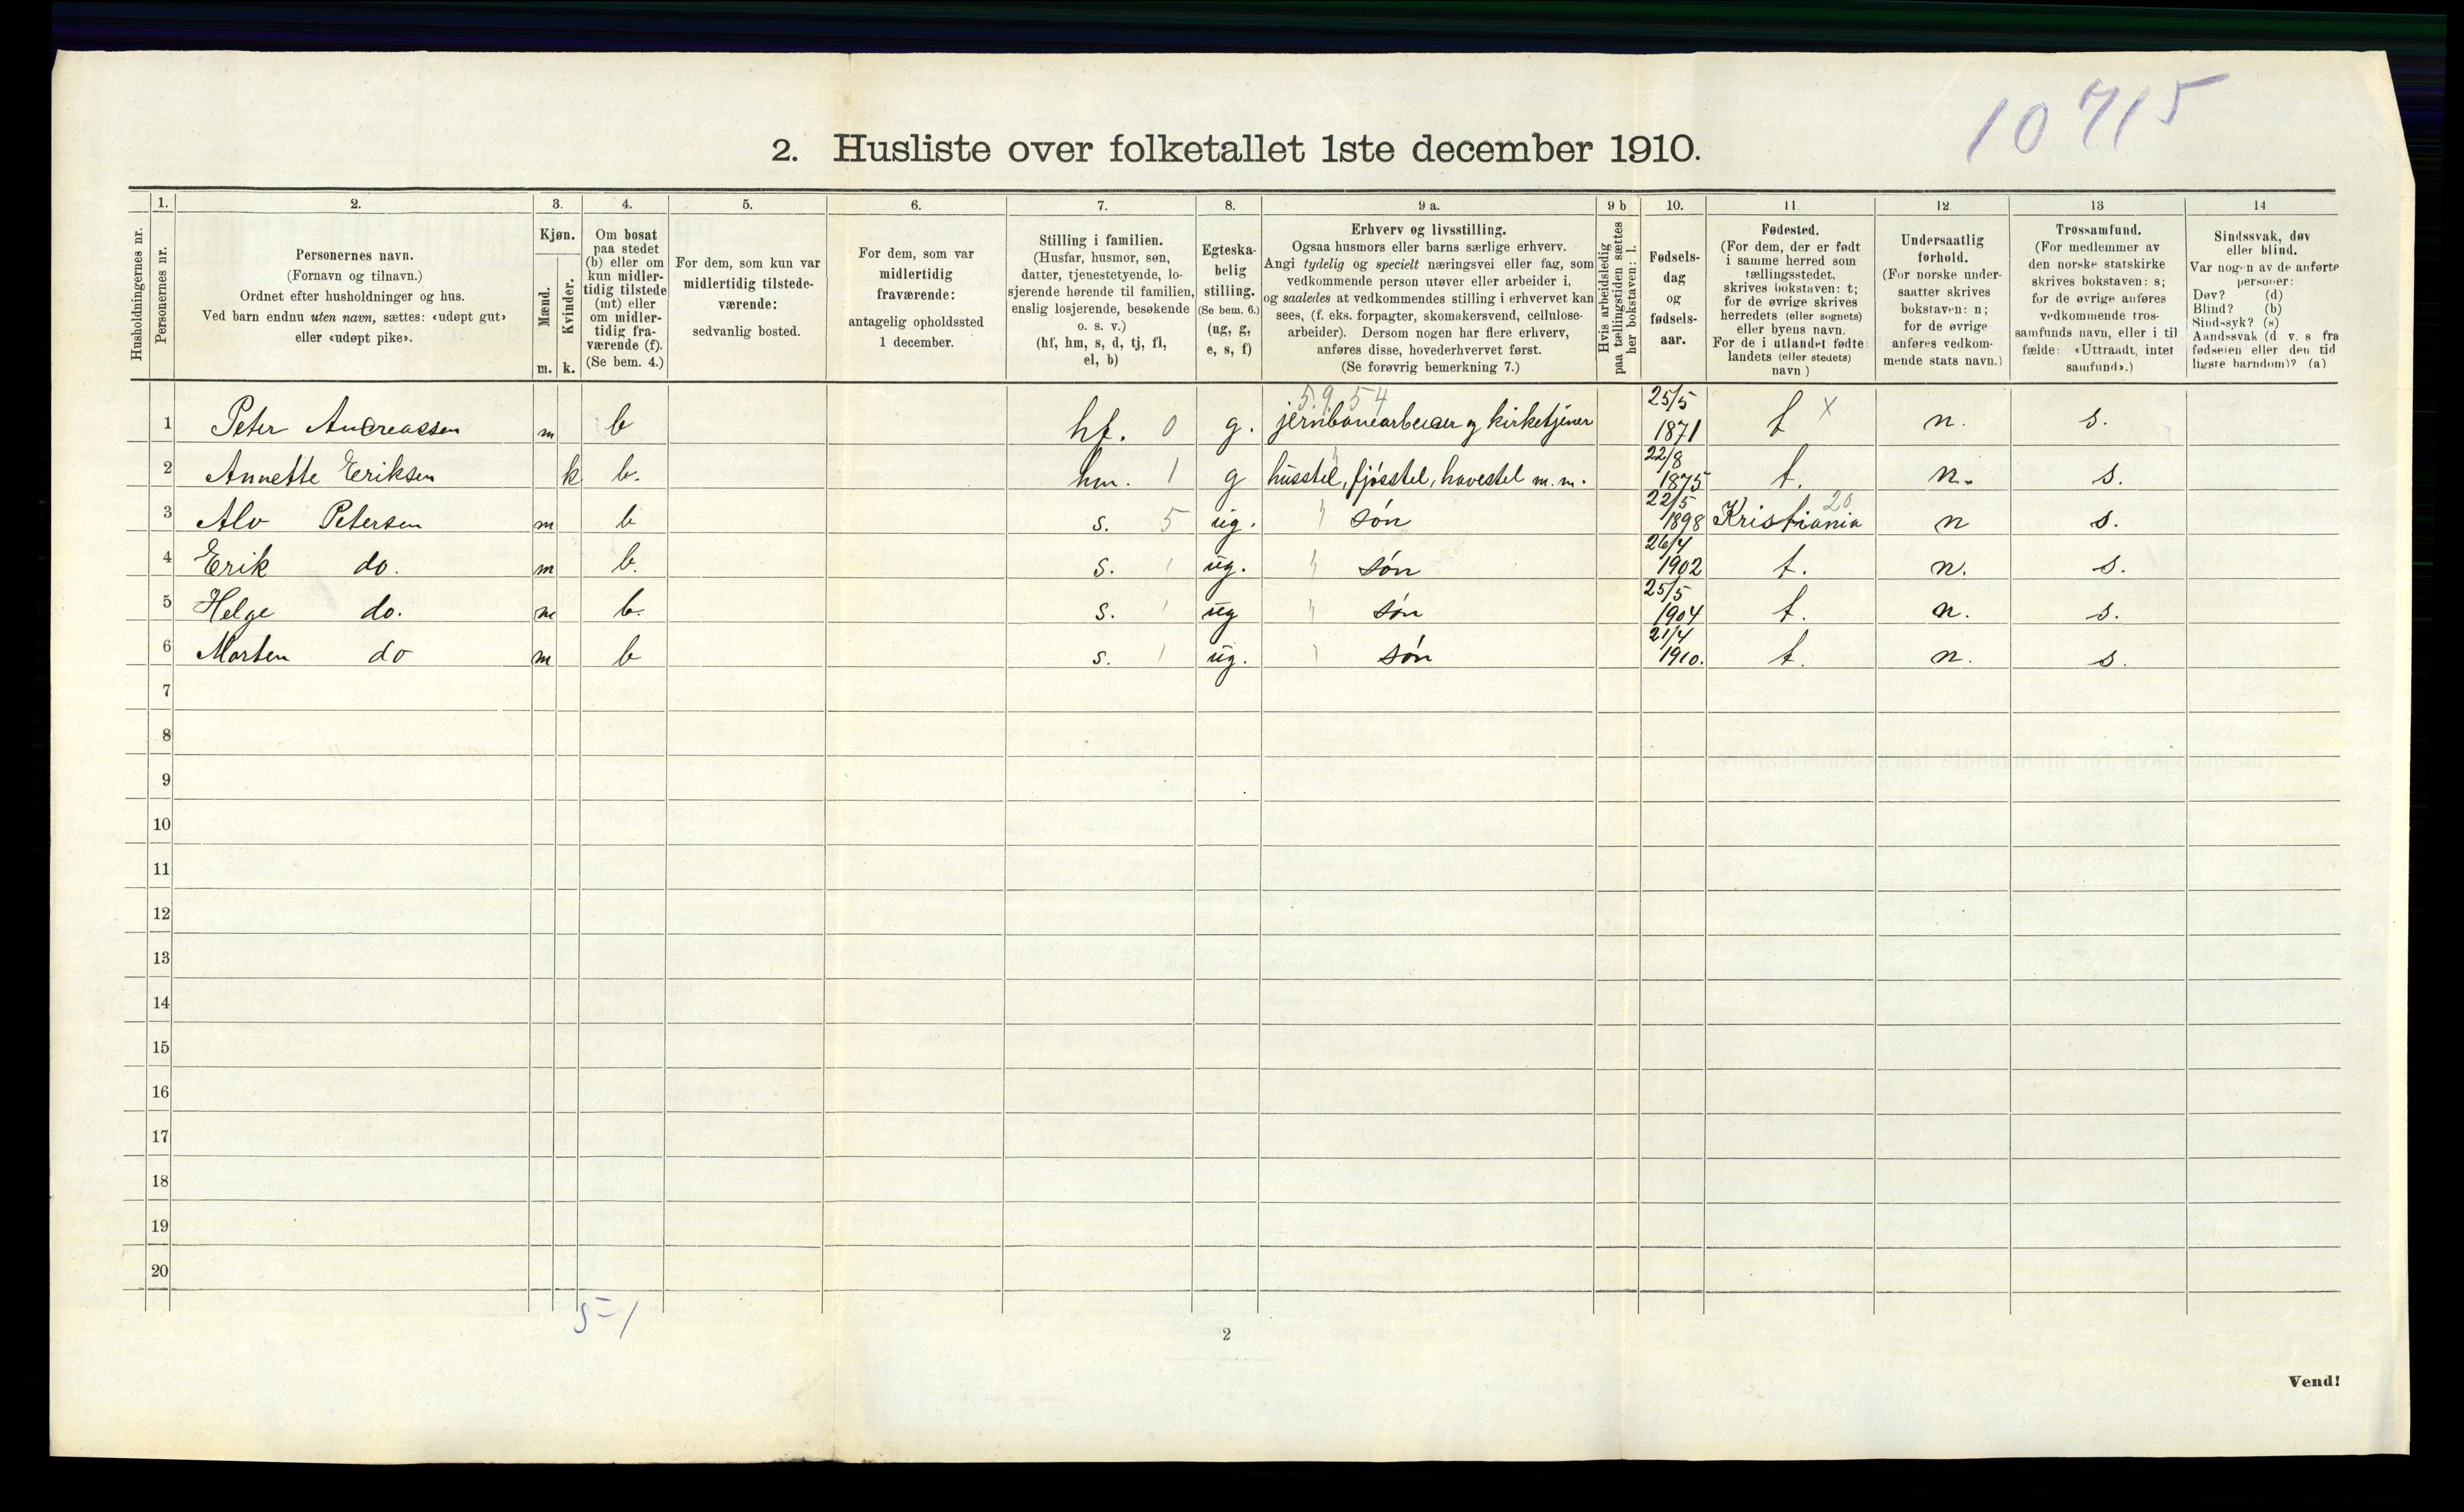 10715
2. Husliste over folketallet 1ste december 1910.
Husholdningernes nr.
1.
Personernes nr.
2.
Personernes navn.
(Fornavn og tilnavn.)
Ordnet efter husholdninger og hus.
Ved barn endnu uten navn, sættes: «udøpt gut»
eller «udøpt pike».
3.
Kjøn.
Mænd.
Kvinder.
m. k.
4.
Om bosat
paa stedet
(b) eller om
kun midler-
tidig tilstede
(mt) eller
om midler-
tidig fra-
værende (f).
(Se bem. 4.)
5.
For dem, som kun var
midlertidig tilstede-
værende:
sedvanlig bosted.
6.
For dem, som var
midlertidig
fraværende:
antagelig opholdssted
1 december.
7.
Stilling i familien.
(Husfar, husmor, søn,
datter, tjenestetyende, lo-
sjerende hørende til familien,
enslig losjerende, besøkende
o. s. v.)
(hf, hm, s, d, tj, fl,
el, b)
8.
Egteska-
belig
stilling.
(Se bem. 6.)
(ug, g,
e, s, f)
9 a.
Erhverv og livsstilling.
Ogsaa husmors eller barns særlige erhverv.
Angi tydelig og specielt næringsvei eller fag, som
vedkommende person utøver eller arbeider i,
og saaledes at vedkommendes stilling i erhvervet kan
sees, (f. eks. forpagter, skomakersvend, cellulose-
arbeider). Dersom nogen har flere erhverv,
anføres disse, hovederhvervet først.
(Se forøvrig bemerkning 7.)
9 b
Hvis arbeidsledig
paa tællingstiden sættes
her bokstaven: l.
10.
Fødsels-
dag
og
fødsels-
aar.
11.
Fødested.
(For dem, der er født
i samme herred som
tællingsstedet,
skrives bokstaven: t;
for de øvrige skrives
herredets (eller sognets)
eller byens navn.
For de i utlandet fødte:
landets (eller stedets)
navn.)
12.
Undersaatlig
forhold.
(For norske under-
saatter skrives
bokstaven: n;
for de øvrige
anføres vedkom-
mende stats navn.)
13
Trossamfund.
(For medlemmer av
den norske statskirke
skrives bokstaven: s;
for de øvrige anføres
vedkommende tros-
samfunds navn, eller i til-
fælde: «Uttraadt, intet
samfund».)
14
Sindssvak, døv
eller blind.
Var nogen av de anførte
personer:
Døv? (d)
Blind? (b)
Sindssyk? (s)
Aandssvak (d. v. s. fra
fødselen eller den tid-
ligste barndom)? (a)
5.9.54
1 Peter Andreassen m b hf. 0 g. jernbanearbeider og kirketjener 25/5 1871 t x n. s.
2 Annette Eriksen k b. hm. 1 g husstel, fjøsstel, havestel m. m. 22/8 1875 t. n. s.
3 Alv Petersen m b s. 5 ug. " søn 22/5 1898 Kristiania 20 n s.
4 Erik do. m b. s. ug. " søn 26/4 1902 t. n. s.
5 Helge do. m b. s. ug " søn 25/5 1904 t. n. s.
6 Morten do m b s. ug. " søn 21/4 1910. t. n. s.
7
8
9
10
11
12
13
14
15
16
17
18
19
20
5-1
2
Vend!